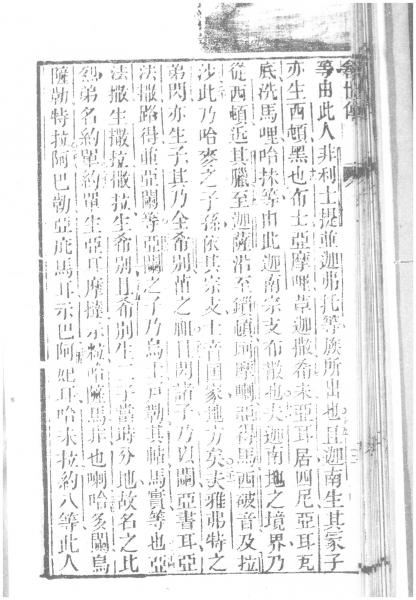 等由此人非利士提並迦弗托等族所出也且迦南生其冢子
亦生西頓黑也布士亞摩哩耆迦撒希未亞耳居四尼亞耳瓦
底洗馬哩哈抹等由此迦南宗支布散也夫迦南地之境界乃
從西頓近其臘至迦薩沿至鎖頓摩喇亞得馬西破音及拉
沙此乃哈麥之子孫依其宗支土音國家地方矣夫雅弗特之
弟閃亦生子其乃全希別輩之祖且閃諸子乃以闌亞書耳亞
法撒路得並亞闌等亞闌之子乃烏士戶勒其轄馬實等也亞
法撒生撒拉撒拉生希別且希別生二子當時分地故名之比
烈弟名約單約單生亞耳摩撻示拉哈薩馬非也喇哈多闌烏
薩勒特拉阿巴勒亞庇馬耳示巴阿妃耳哈未拉約八等此人